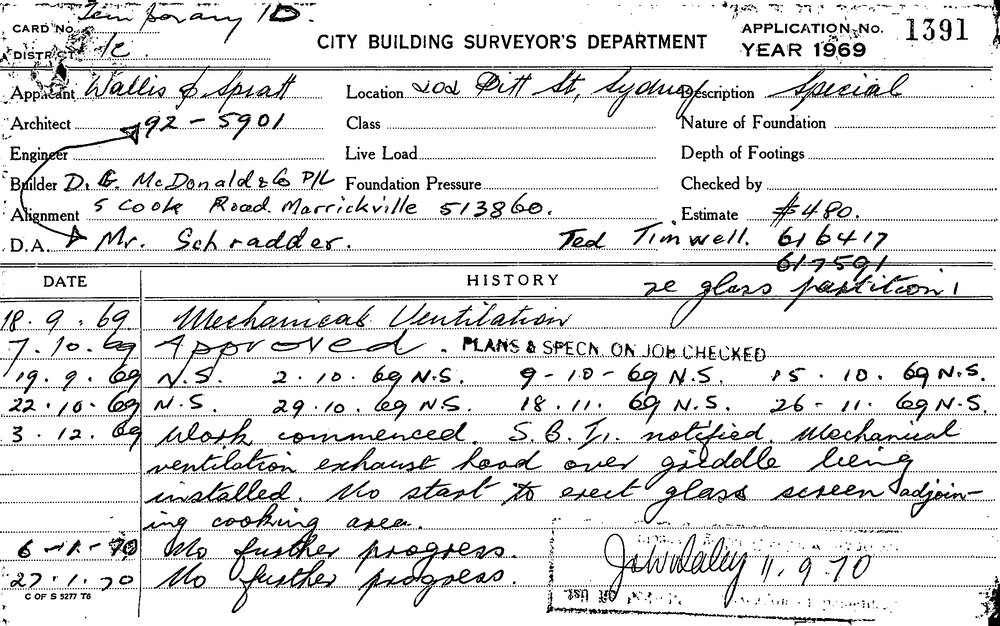 Temporary ID.
CARD No.
DISTRICT 1c
CITY BUILDING SURVEYOR'S DEPARTMENT
APPLICATION No. 1391
YEAR 1969
Applicant Wallis & Spratt Location 202 Pitt St, Sydney Description Special
Architect 92-5901 Class Nature of Foundation
Engineer Live Load Depth of Footings
Builder D. G. McDonald & Co P/L Foundation Pressure Checked by
Alignment 5 Cook Road Marrickville 513860. Estimate $480.
D.A. Mr. Schradder. Ted Timwell. 616417
617591
DATE HISTORY re glass partition!
18.9.69 Mechanical Ventilation
7.10.69 Approved. PLANS & SPECN. ON JOB CHECKED
19.9.69 N.S. 2.10.69 N.S. 9-10-69 N.S. 15.10.69 N.S.
22.10.69 N.S. 29.10.69 N.S. 18.11.69 N.S. 26-11.69 N.S.
3.12.69 Work commenced. S.B.I. notified. Mechanical
ventilation exhaust hood over griddle being
installed. No start to erect glass screen adjoin-
ing cooking area.
6-1-70 No further progress.
27.1.70 No further progress.
11.9.70
C OF S 5277 T6